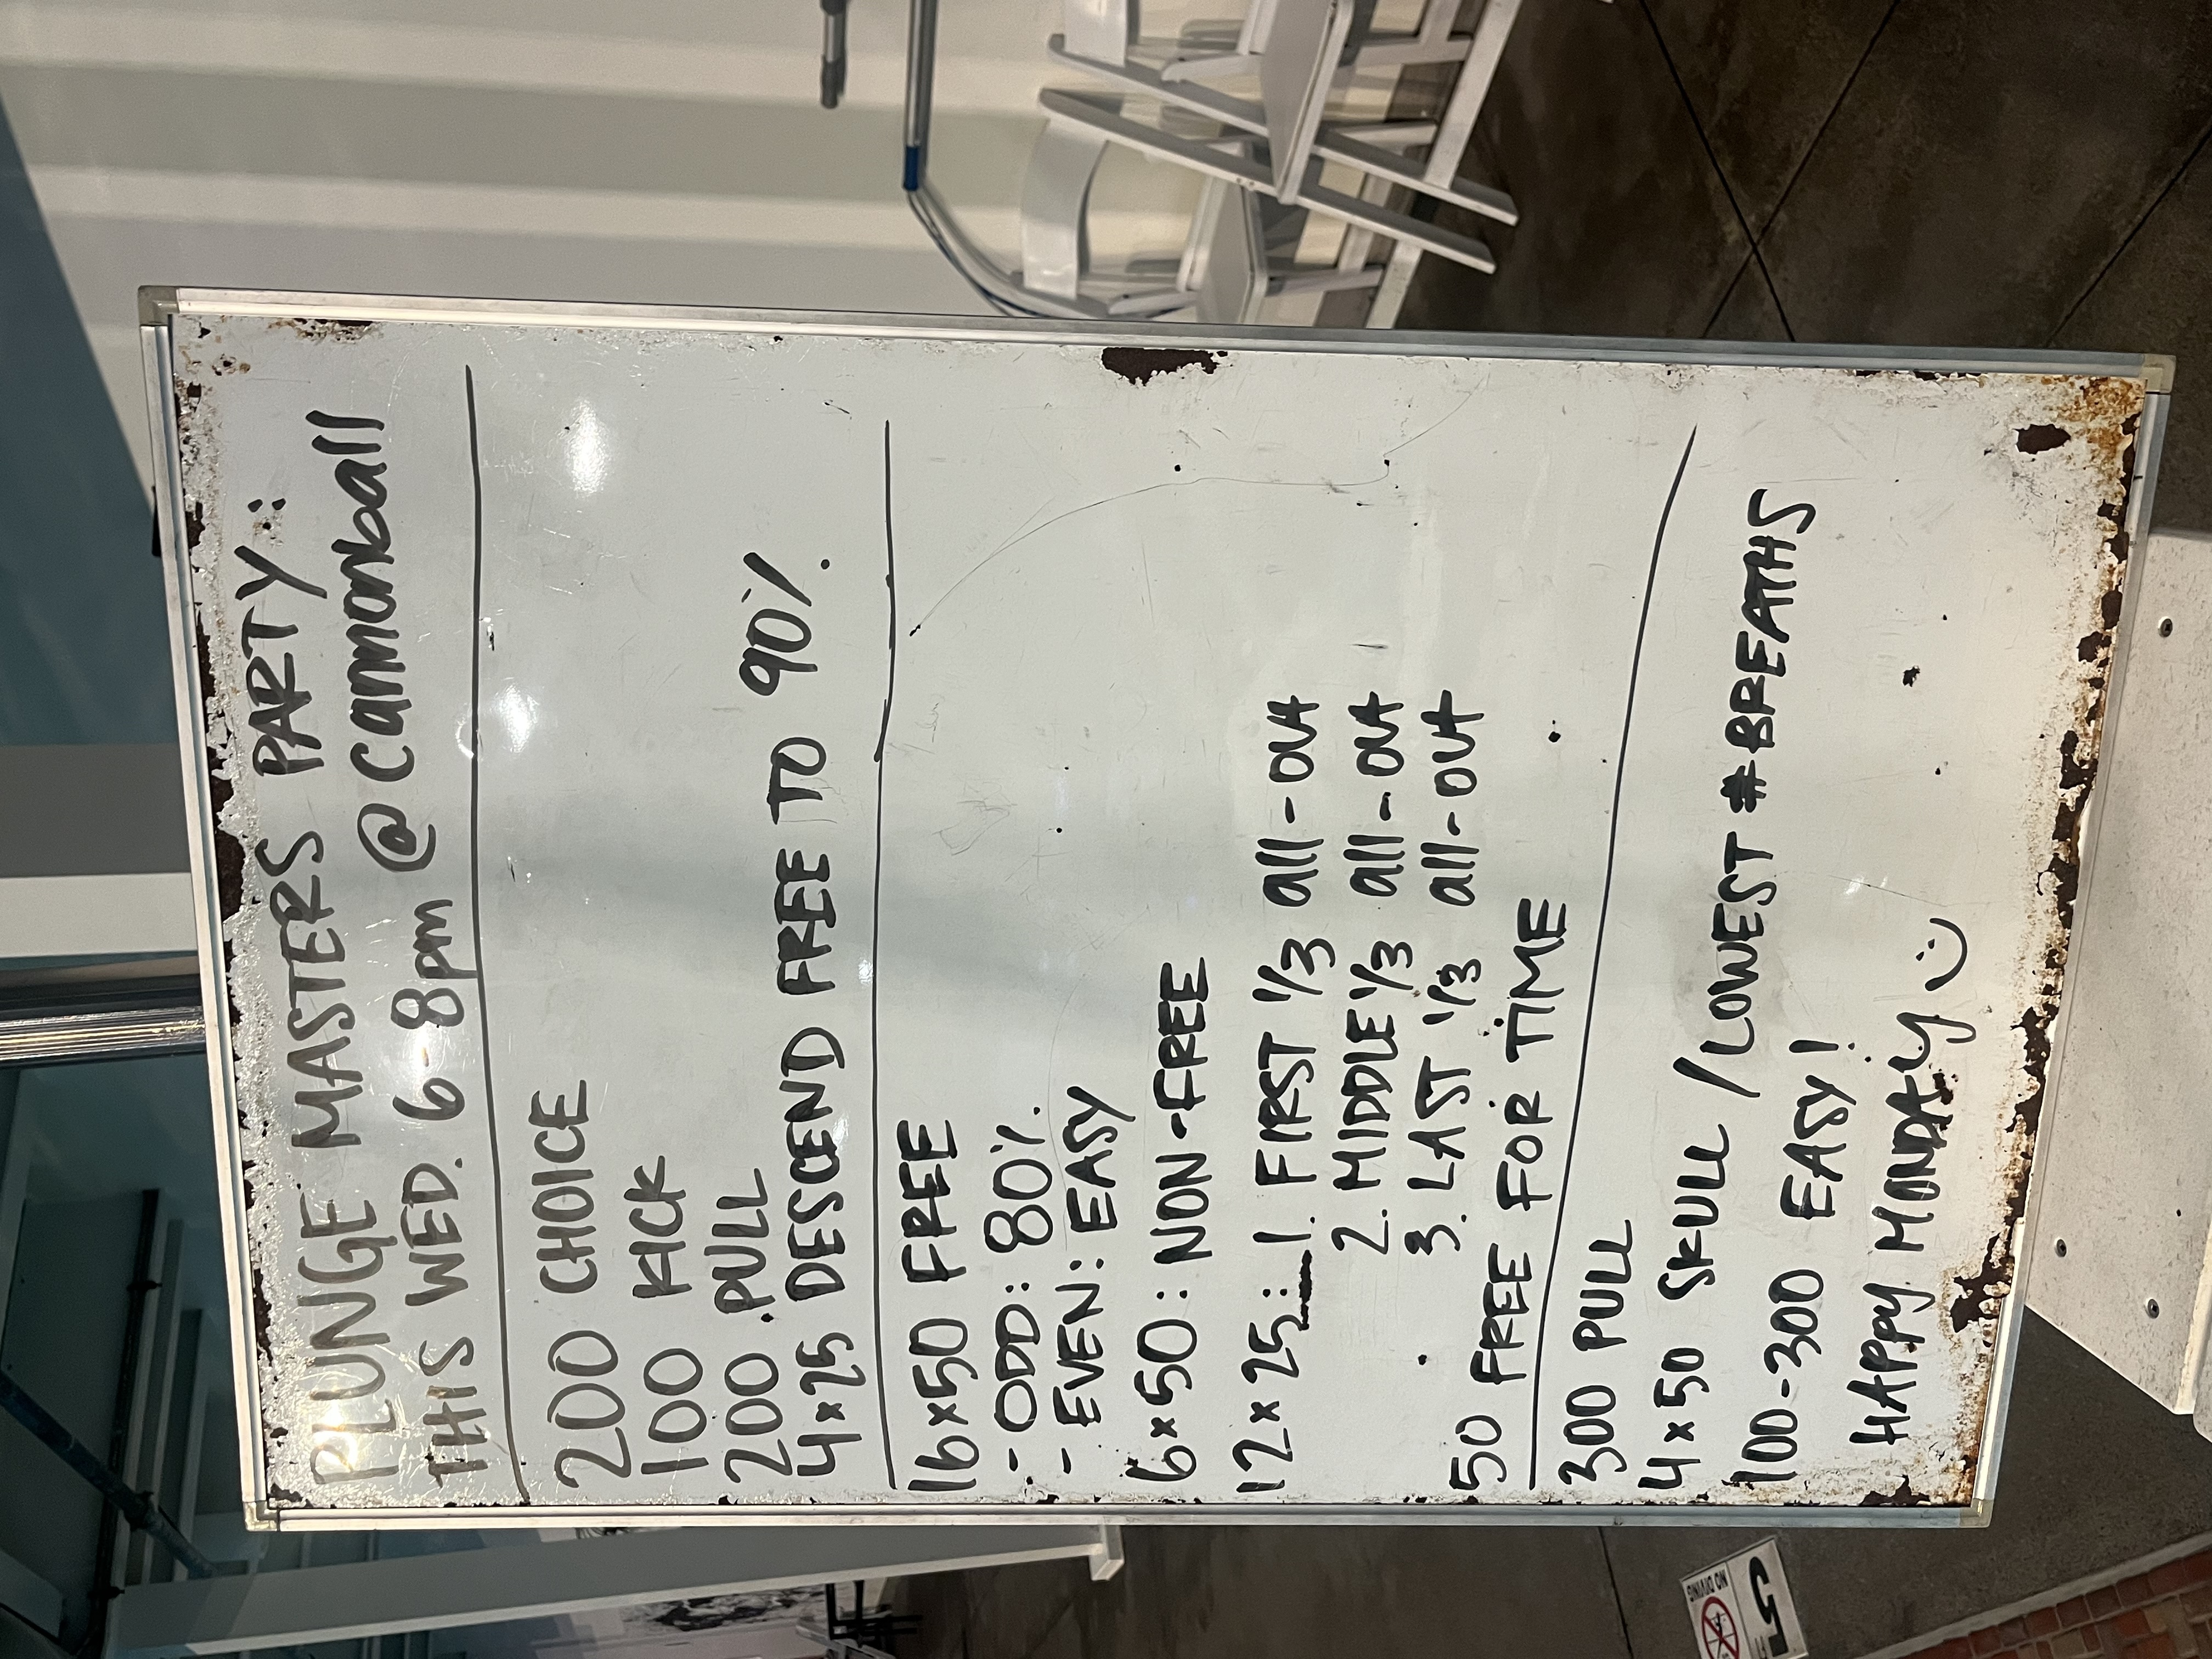 PLUNGE MASTERS PARTY:
THIS WED. 6-8pm @ Cannonball
200 CHOICE
100 KICK
200 PULL
4x25 DESCEND FREE TO 90%
16x50 FREE
- ODD: 80%
- EVEN: EASY
6x50: NON-FREE
12x25: 1. FIRST 1/3 all-out
2. MIDDLE 1/3 all-out
3. LAST 1/3 all-out
50 FREE FOR TIME
300 PULL
4x50 SKULL / LOWEST # BREATHS
100-300 EASY!
HAPPY MONDAY
NO DIVING
5